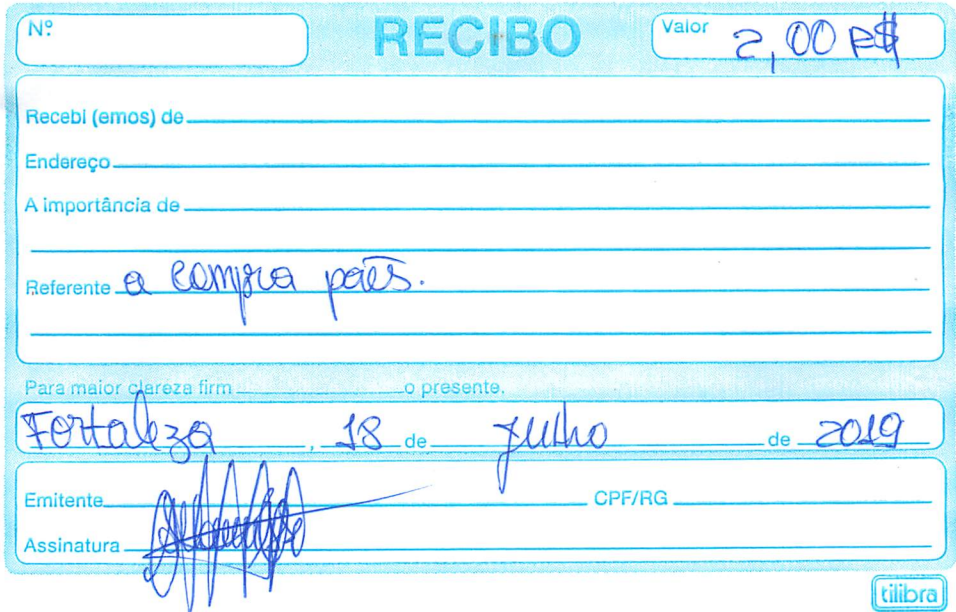 Nº RECIBO Valor 2,00 R$
Recebi (emos) de
Endereço
A importância de
Referente a compra pães.
Para maior clareza firm o presente.
Fortaleza, 18 de julho de 2019
Emitente CPF/RG
Assinatura
tilibra